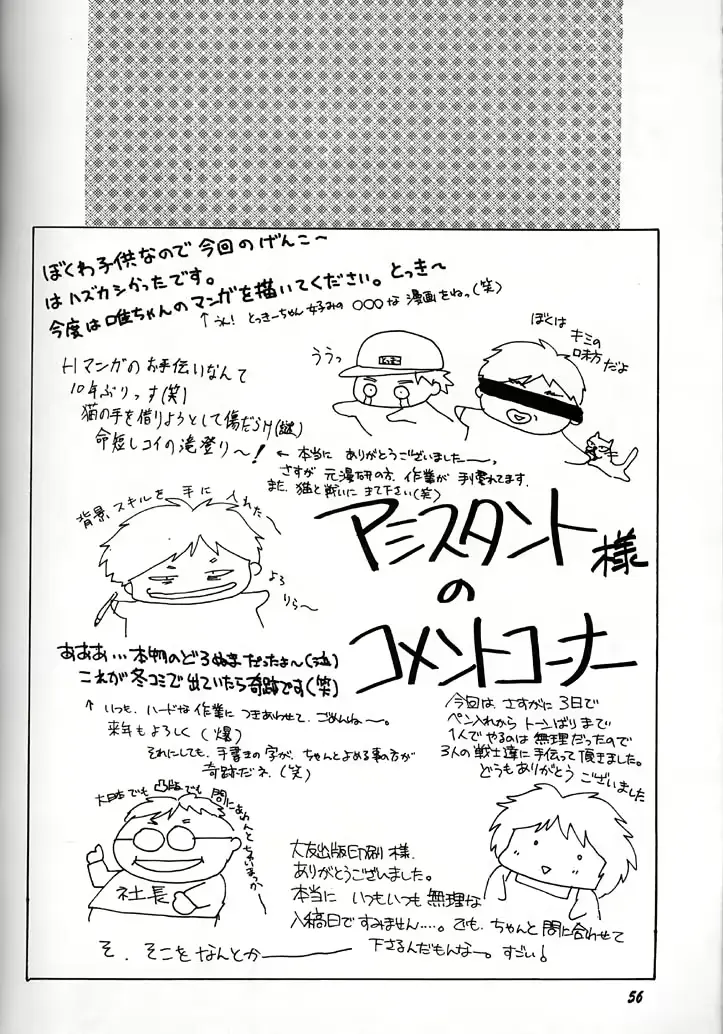 ぼくわ子供なので今回のげんこ〜
はハズカシかったです。
今度は唯ちゃんのマンガを描いてください。とっき〜
↑うん! とっきーちゃん好みの ○○○な 漫画をねっ(笑)
ううっ
ぼくは
キミの
味方だよ
Hマンガのお手伝いなんて
10年ぶりっす(笑)
猫の手を借りようとして傷だらけ(謎)
命短しコイの滝登り〜!
← 本当に ありがとうございましたーっ。
さすが 元漫研の方、作業が 手慣れてます。
また、猫と戦いに きて下さい(笑)
背景スキルを 手に 入れた〜
よろ
りら〜
アシスタント様
の
コメントコーナー
あああ…本物のどろぬまだったよ〜(泣)
これが冬コミで出ていたら奇跡です(笑)
↑ いつも、ハードな作業に つきあわせて、ごめんね〜。
来年もよろしく(爆)
それにしても、手書きの字が、ちゃんとよめる事の方が
奇跡だネ(笑)
今回は、さすがに 3日で
ペン入れから トーンばりまで
1人でやるのは 無理だったので
3人の戦士達に手伝って頂きました。
どうもありがとう ございました
大日本でも 凸版でも 間にあわんと
社長
大友出版印刷 様、
ありがとうございました。
本当に いつもいつも 無理な
入稿日ですみません……。でも、ちゃんと 間に合わせて
下さるんだもんなー。すごい!
そ、そこをなんとかーーー
56